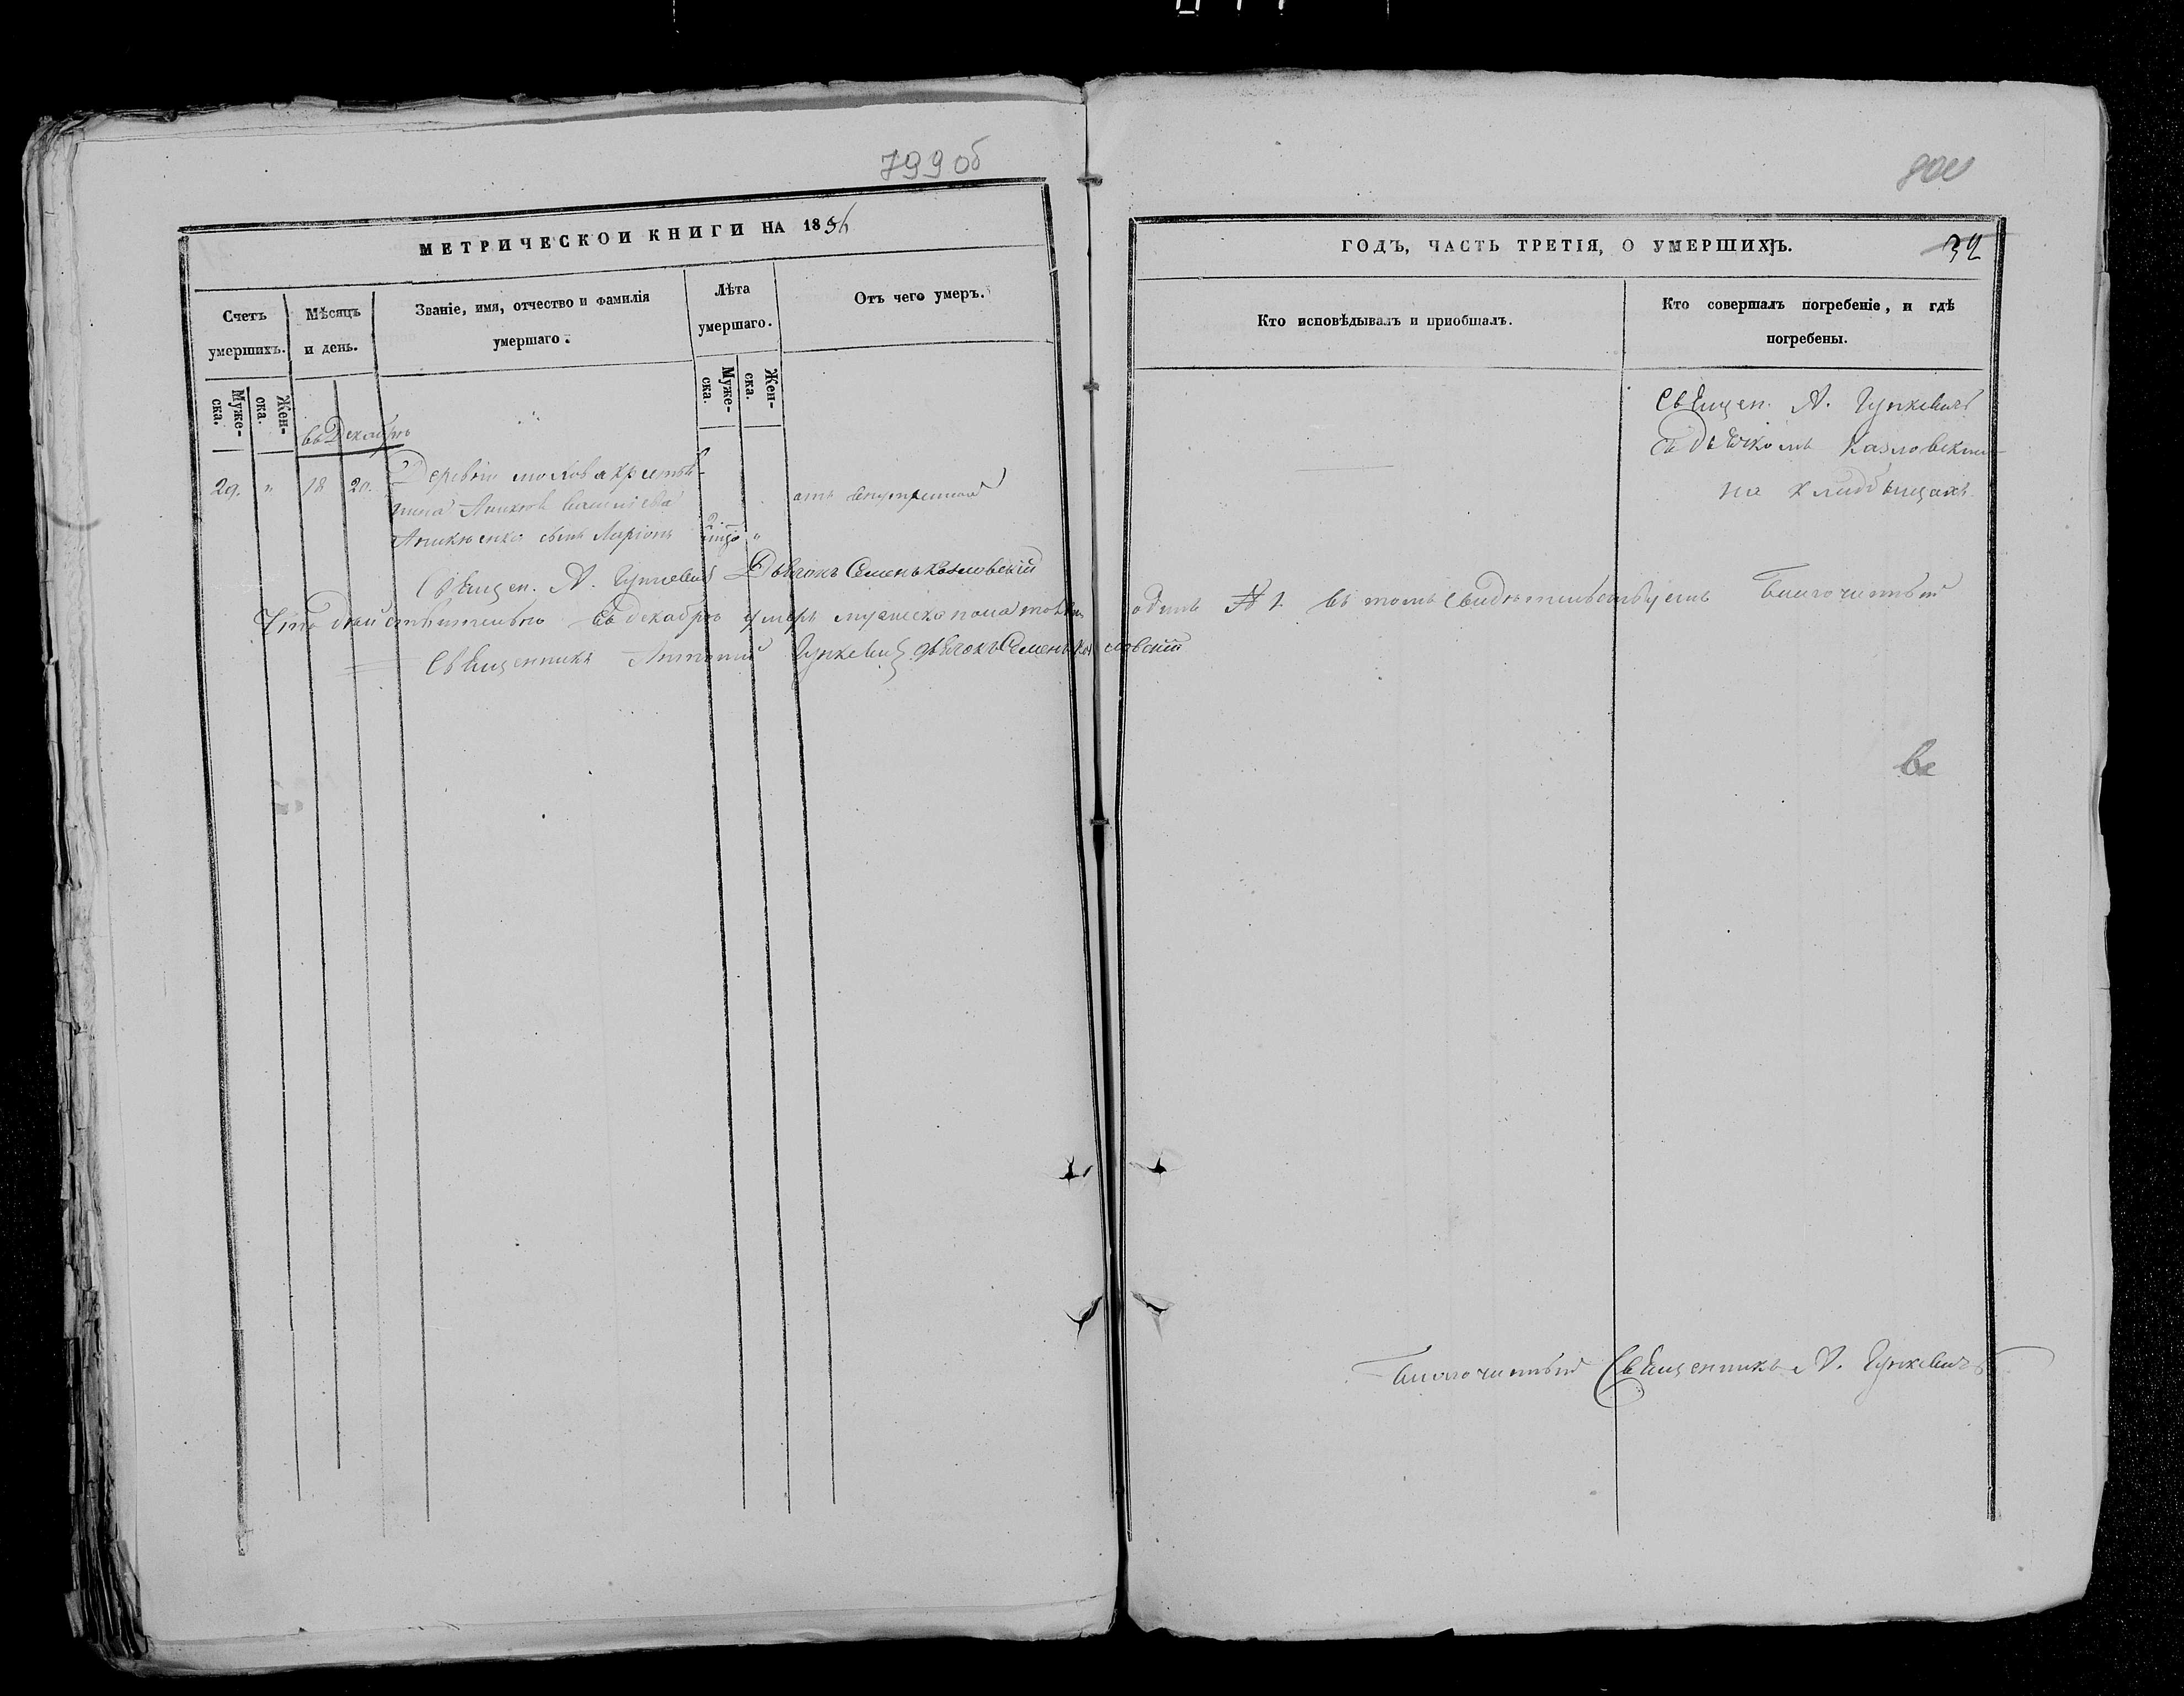 799 об
МЕТРИЧЕСКОЙ КНИГИ НА 1856
Счетъ умершихъ.
Муже-ска.
Жен-ска.
Мѣсяцъ и день.
Званіе, имя, отчество и фамилія умершаго.
Лѣта умершаго.
Муже-ска.
Жен-ска.
Отъ чего умеръ.
въ Декабрѣ
29. " 18 20.
Деревни крестья-
нина
сынъ Ларіонъ
"
отъ
Священ. А. Гункевичъ Дьячокъ Семенъ Козловскій
Что дѣйствительно въ декабрѣ умеръ мужеска пола токмо одинъ № 1. въ томъ свидѣтельствуемъ Благочинный
Священникъ Антоній Гункевичъ дьячокъ Семенъ Козловскій
800
ГОДЪ, ЧАСТЬ ТРЕТІЯ, О УМЕРШИХЪ.
32
Кто исповѣдывалъ и приобщалъ.
Кто совершалъ погребеніе, и гдѣ погребены.
Священ. А. Гункевичъ
съ Дьячкомъ Казловскимъ
на кладбищахъ
Благочинный Священникъ А. Гункевичъ